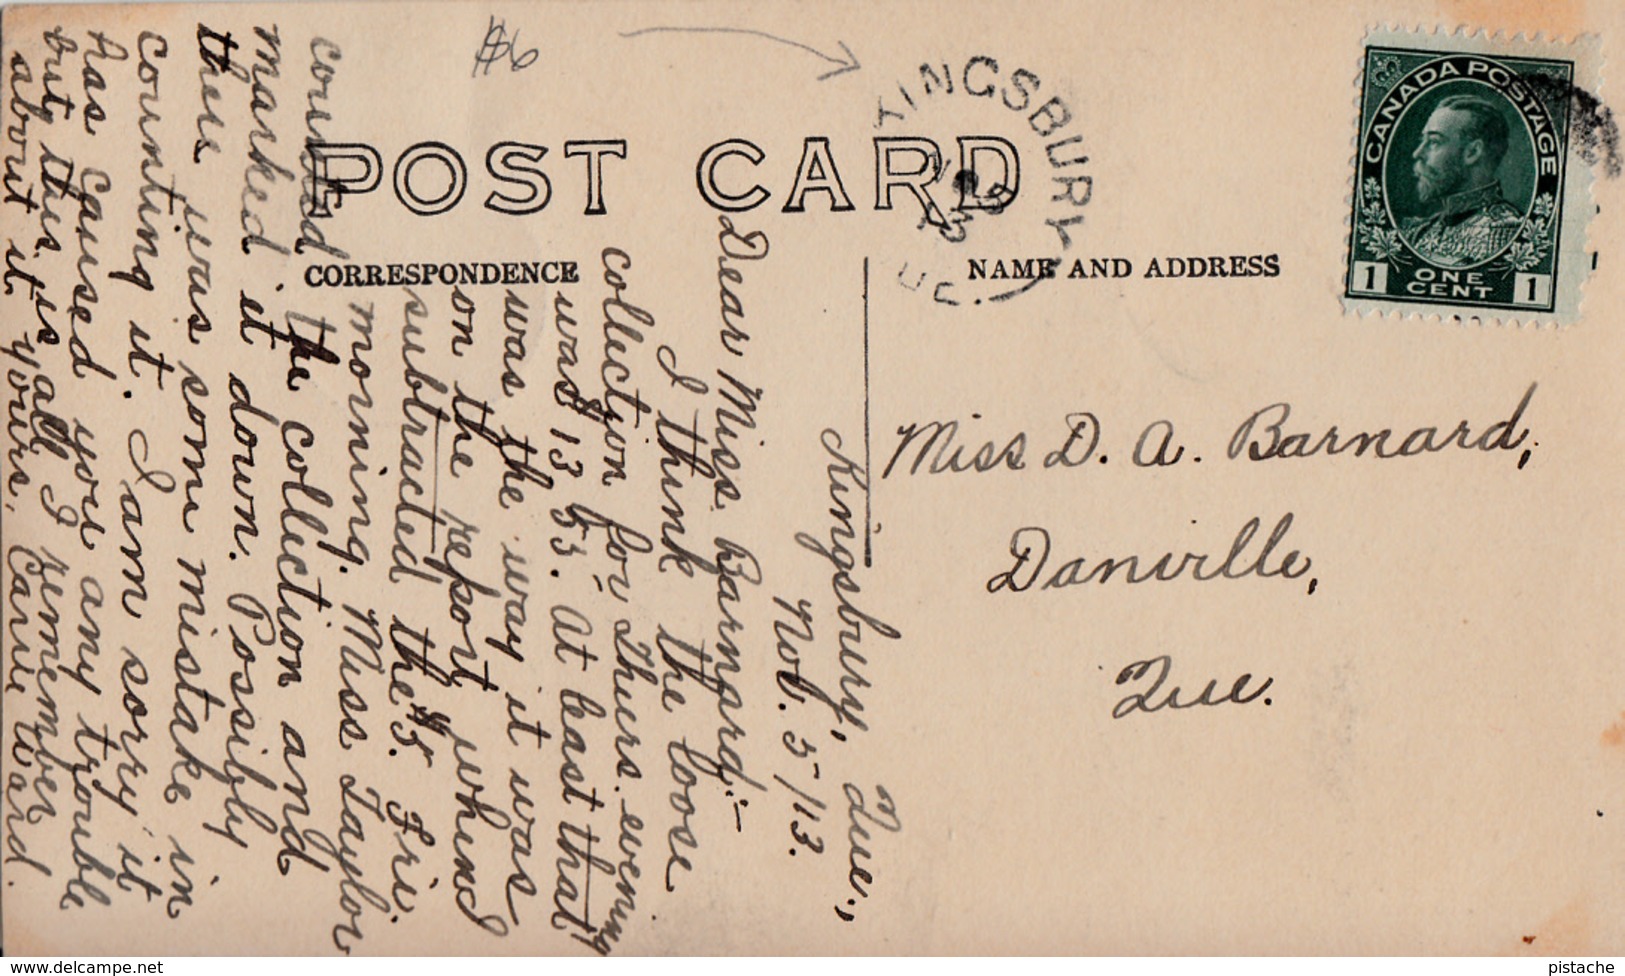 $6
KINGSBURY
NO 5
13
QUE.
POST CARD
CORRESPONDENCE
NAME AND ADDRESS
CANADA POSTAGE
1 ONE CENT 1
Miss D. A. Barnard,
Danville,
Que.
Kingsbury, Que.,
Nov. 5/13.
Dear Miss Barnard:-
I think the loose
collection for Thurs. evening
was $13.53. At least that
was the way it was
on the report when I
subtracted the $5. Fri.
morning. Miss Taylor
counted the collection and
marked it down. Possibly
there was some mistake in
counting it. I am sorry it
has caused you any trouble
but this is all I remember
about it yours, Carrie Ward.
pistache
www.delcampe.net